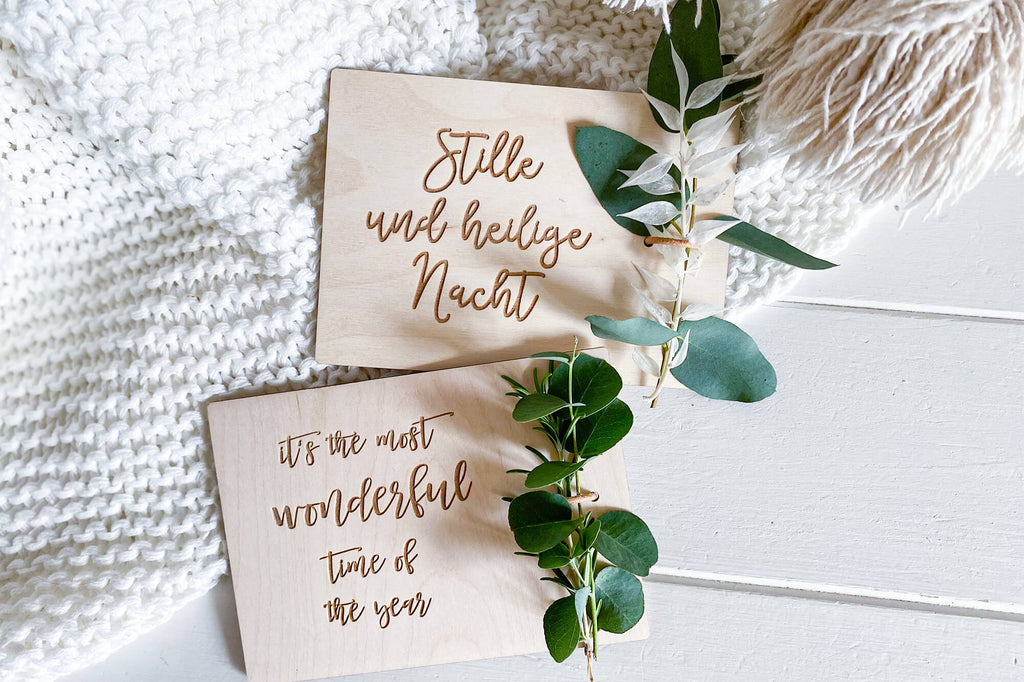 Stille
und heilige
Nacht
it's the most
wonderful
time of
the year